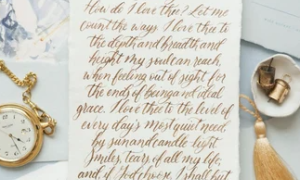 How do I love thee? Let me
count the ways. I love thee to
the depth and breadth and
height my soul can reach
when feeling out of sight for
the ends of being and ideal
grace. I love thee to the level of
every day's most quiet need
by sun and candle-light
Smiles, tears, of all my life,
and, if God choose, I shall but